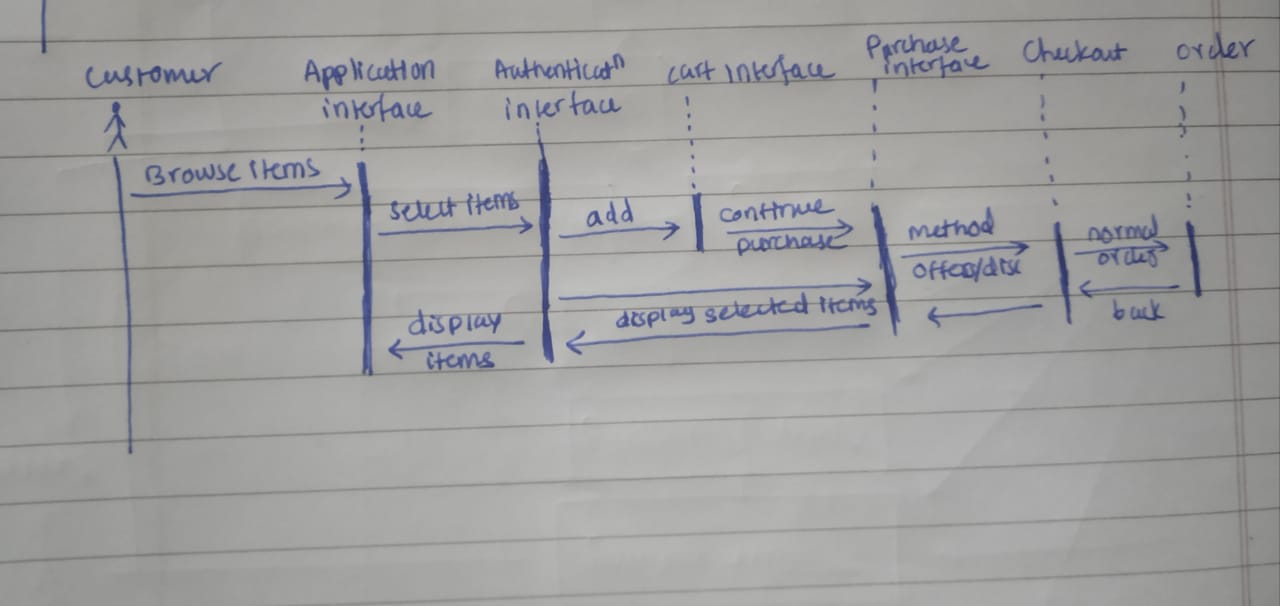 Customer
Application
interface
Authenticatn
interface
Cart interface
Purchase
interface
Checkout
order
Browse items
select items
add
continue
purchase
method
offers/disc
normal
order
back
display selected items
display
items